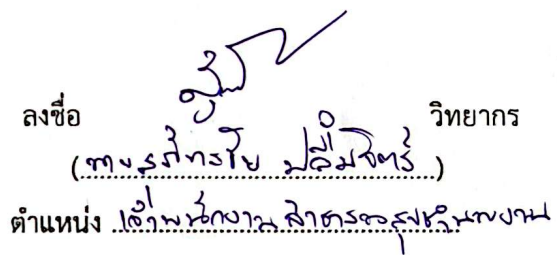 ลงชื่อ วิทยากร
(นาย ปลื้มจิตร์)
ตำแหน่ง เจ้าพนักงานสาธารณสุขชำนาญงาน